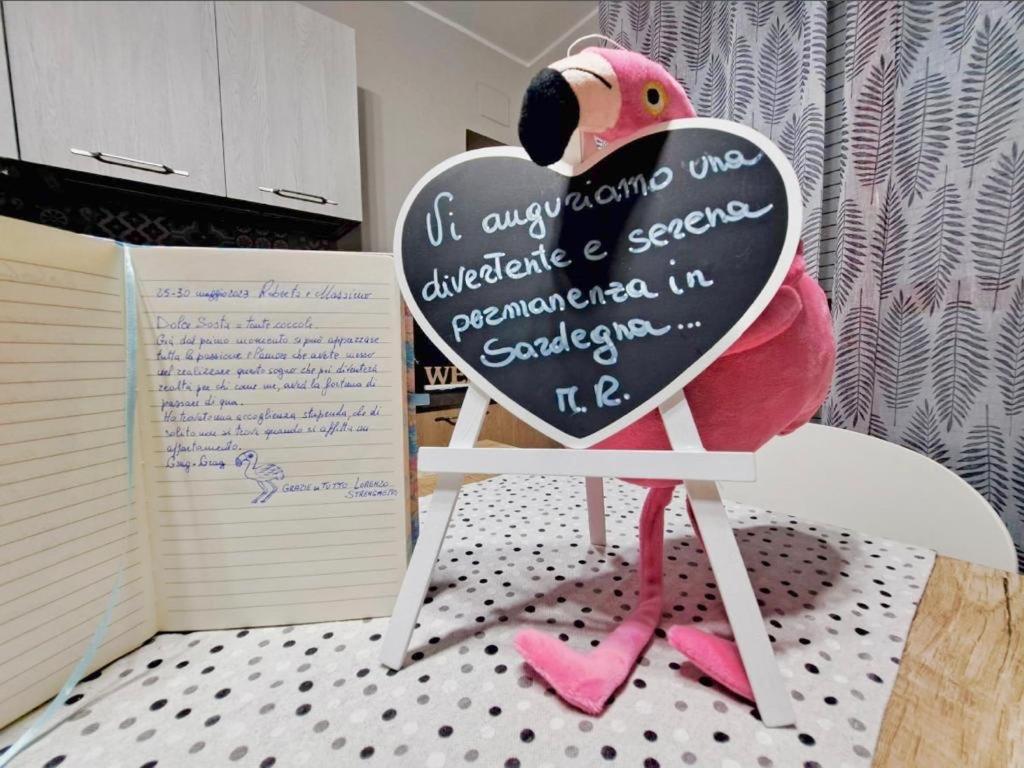 25-30 maggio 2023 Roberta e Massimo
Dolce Sosta = tante coccole.
Già dal primo momento si può apprezzare
tutta la passione e l'amore che avete messo
nel realizzare questo sogno che poi diventerà
realtà per chi come me, avrà la fortuna di
passare di qua.
Ho trovato una accoglienza stupenda, che di
solito non si trova quando si affitta un
appartamento.
GRAZIE DI TUTTO LORENZO
Vi auguriamo una
divertente e serena
permanenza in
Sardegna...
M. R.
WE